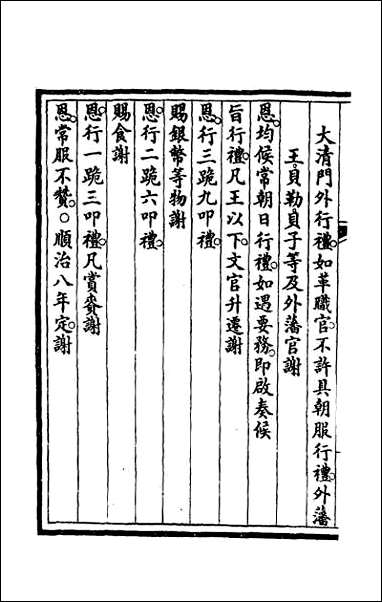 大清門外行禮如革職官不許具朝服行禮外藩
王貝勒貝子等及外藩官謝
恩均候常朝日行禮如遇要務即啟奏候
旨行禮凡王以下文官升遷謝
恩行三跪九叩禮
賜銀幣等物謝
恩行二跪六叩禮
賜食謝
恩行一跪三叩禮凡賞賚謝
恩常服不贊○順治八年定謝